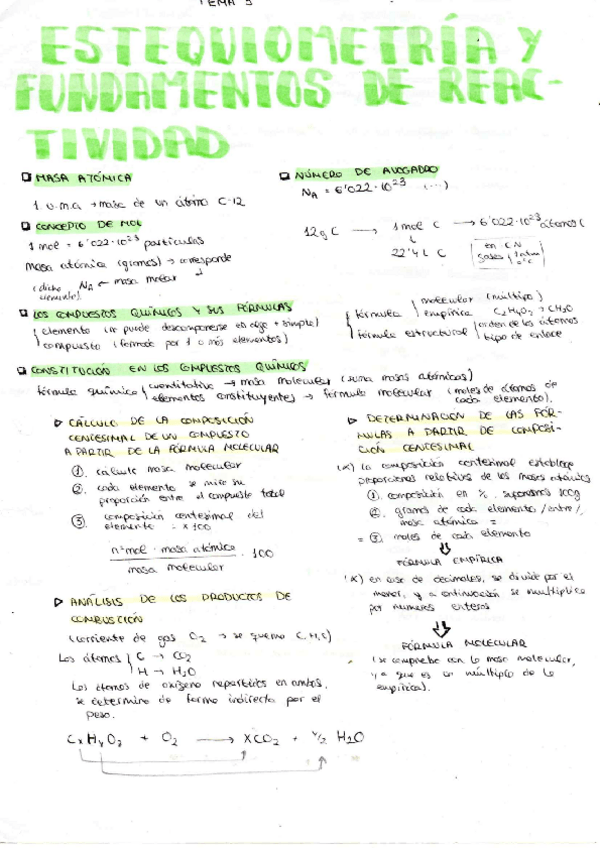 TEMA 3
ESTEQUIOMETRÍA Y
FUNDAMENTOS DE REAC-
TIVIDAD
MASA ATÓMICA
1 u.m.a → masa de un átomo C-12
CONCEPTO DE MOL
1 mol = 6'022·10²³ partículas
masa atómica (gramos) → corresponde
(dicho elemento) NA ← masa molar
NÚMERO DE AVOGADRO
NA = 6'022·10²³ (...)
12g C → 1 mol C → 6'022·10²³ átomos C
22'4 L C
en C.N
gases 1 atm
0°C
LOS COMPUESTOS QUÍMICOS Y SUS FÓRMULAS
elemento (no puede descomponerse en algo + simple)
compuesto (formado por 1 o más elementos)
fórmula molecular (múltiplo)
empírica C₂H₄O₂ → CH₂O
fórmula estructural orden de los átomos
tipo de enlace
CONSTITUCIÓN EN LOS COMPUESTOS QUÍMICOS
fórmula química cuantitativa → masa molecular (suma masas atómicas)
elementos constituyentes → fórmula molecular (moles de átomos de
cada elemento).
▷ CÁLCULO DE LA COMPOSICIÓN
CENTESIMAL DE UN COMPUESTO
A PARTIR DE LA FÓRMULA MOLECULAR
① cálculo masa molecular
② cada elemento se mira su
proporción entre el compuesto total
③ composición centesimal del
elemento = x 100
nºmol · masa atómica · 100
masa molecular
▷ ANÁLISIS DE LOS PRODUCTOS DE
COMBUSTIÓN
(corriente de gas O₂ → se quema C,H,O)
Los átomos C → CO₂
H → H₂O
Los átomos de oxígeno repartidos en ambos,
se determina de forma indirecta por el
peso.
CxHyOz + O₂ → XCO₂ + y/2 H₂O
▷ DETERMINACION DE LAS FÓR-
MULAS A PARTIR DE COMPOSI-
CIÓN CENTESIMAL
(*) la composición centesimal establece
proporciones relativas de las masas atómicas
① composición en %, suponemos 100g
② gramos de cada elemento /entre/
masa atómica =
= ③ moles de cada elemento
FÓRMULA EMPÍRICA
(*) en caso de decimales, se divide por el
menor, y a continuación se multiplica
por números enteros
FÓRMULA MOLECULAR
(se comprueba con la masa molecular,
ya que es un múltiplo de la
empírica).